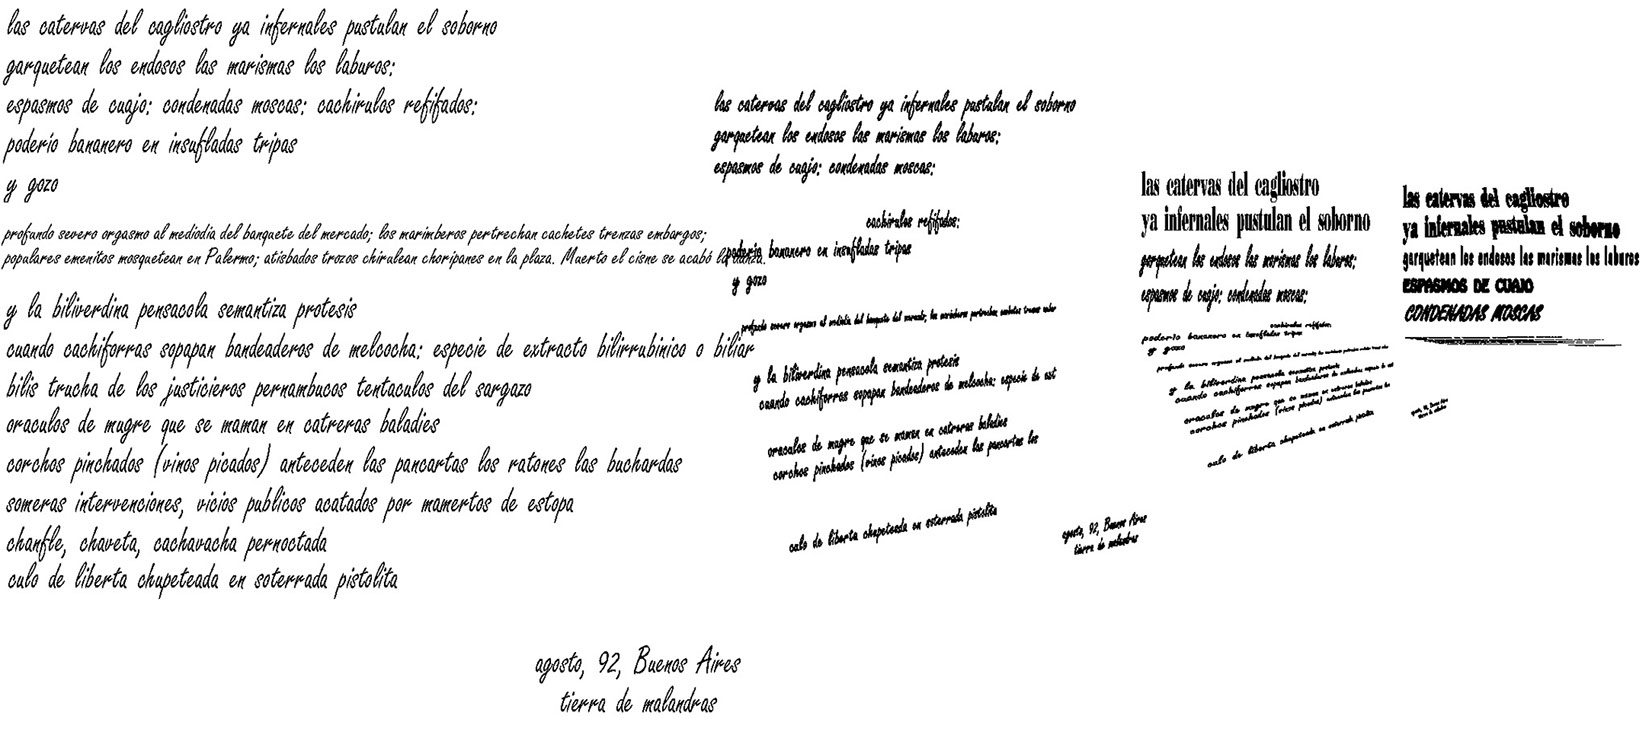 las catervas del cagliostro ya infernales pustulan el soborno
garquetean los endosos las marismas los laburos:
espasmos de cuajo: condenadas moscas: cachirulos refifados:
poderío bananero en insufladas tripas
y gozo
profundo severo orgasmo al mediodía del banquete del mercado; los marimberos pertrechan cachetes trenzas embargos;
populares emenitos mosquetean en Palermo; atisbados trozos chirulean choripanes en la plaza. Muerto el cisne se acabó la
y la biliverdina pensacola semantiza protesis
cuando cachiforras sopapan bandeaderos de melcocha: especie de extracto bilirrubinico o biliar
bilis trucha de los justicieros pernambucos tentaculos del sargazo
oraculos de mugre que se maman en catreras baladies
corchos pinchados (vinos picados) anteceden las pancartas los ratones las buchardas
someras intervenciones, vicios publicos acatados por mamertos de estopa
chanfle, chaveta, cachavacha pernoctada
culo de liberta chupeteada en soterrada pistolita
agosto, 92, Buenos Aires
tierra de malandras
las catervas del cagliostro ya infernales pustulan el soborno
garquetean los endosos las marismas los laburos:
espasmos de cuajo: condenadas moscas:
cachirulos refifados:
poderío bananero en insufladas tripas
y gozo
profundo severo orgasmo al mediodía del banquete del mercado; los marimberos pertrechan cachetes trenzas
y la biliverdina pensacola semantiza protesis
cuando cachiforras sopapan bandeaderos de melcocha: especie de ext
oraculos de mugre que se maman en catreras baladies
corchos pinchados (vinos picados) anteceden las pancartas los
culo de liberta chupeteada en soterrada pistolita
agosto, 92, Buenos Aires
tierra de malandras
las catervas del cagliostro
ya infernales pustulan el soborno
garquetean los endosos las marismas los laburos:
espasmos de cuajo: condenadas moscas:
cachirulos refifados:
poderío bananero en insufladas tripas
y gozo
profundo severo orgasmo al mediodía del banquete del mercado; los marimberos pertrechan cachetes trenzas
y la biliverdina pensacola semantiza protesis
cuando cachiforras sopapan bandeaderos de melcocha: especie de ext
oraculos de mugre que se maman en catreras baladies
corchos pinchados (vinos picados) anteceden las pancartas los
culo de liberta chupeteada en soterrada pistolita
las catervas del cagliostro
ya infernales pustulan el soborno
garquetean los endosos las marismas los laburos
ESPASMOS DE CUAJO
CONDENADAS MOSCAS